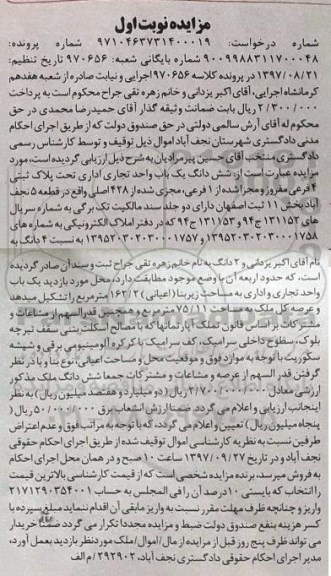 مزایده نوبت اول
شماره درخواست: ۹۷۱۰۴۶۳۷۳۱۴۰۰۰۱۹ شماره پرونده:
۹۰۰۹۹۸۸۳۱۱۷۰۰۰۴۸ شماره بایگانی شعبه: ۹۷۰۶۵۶ تاریخ تنظیم:
۱۳۹۷/۰۸/۲۱ در پرونده کلاسه ۹۷۰۶۵۶ اجرایی و نیابت صادره از شعبه هفدهم
کرمانشاه اجرایی، آقای اکبر یزدانی و خانم زهره تقی جراح محکوم است به پرداخت
۲/۳۰۰/۰۰۰ ریال بابت ضمانت وثیقه گذار آقای حمیدرضا محمدی در حق
محکوم له آقای آرش سالمی دولتی در حق صندوق دولت که از طریق اجرای احکام
مدنی دادگستری شهرستان نجف آباد اموال ذیل توقیف و توسط کارشناس رسمی
دادگستری منتخب آقای حسین پیرمرادیان به شرح ذیل ارزیابی گردیده است، مورد
مزایده عبارت است از: شش دانگ یک باب واحد تجاری اداری تحت پلاک ثبتی
۴ فرعی مفروز و مجزا شده از ۱ فرعی، مجزی شده از ۴۲۸ اصلی واقع در قطعه ۵ نجف
آباد بخش ۱۱ ثبت اصفهان دارای دو جلد سند مالکیت تک برگی به شماره سریال
های ۱۳۱۱۵۲ ج۹۴ و ۱۳۱۱۵۳ ج۹۴ که در دفتر املاک الکترونیکی به شماره های
۱۳۹۵۲۰۳۰۲۰۳۰۰۰۱۷۵۸ و ۱۳۹۵۲۰۳۰۲۰۳۰۰۰۱۷۵۷ به نسبت ۴ دانگ به
نام آقای اکبر یزدانی و ۲ دانگ به نام خانم زهره تقی جراح ثبت و سند آن صادر گردیده
است، که حدود اربعه آن با وضع موجود مطابقت دارد، محل مورد بازدید یک باب
واحد تجاری و اداری به مساحت زیربنا (اعیانی) ۱۶۲/۲ مترمربع را تشکیل میدهد
و عرصه کل ملک به مساحت ۷۵/۱۱ مترمربع و همچنین قدرالسهم از مشاعات و
مشترکات بر اساس قانون تملک آپارتمانها که با مصالح اسکلت بتنی سقف تیرچه
بلوک، سطوح داخلی سرامیک، کف سرامیک با کرکره آلومینیومی برقی و شیشه
سکوریت با توجه به موارد فوق و موقعیت محل و مساحت اعیانی، نوع بنا و با در نظر
گرفتن قدر السهم از عرصه و مشاعات و مشترکات جمعا شش دانگ ملک مذکور
ارزشی معادل ۲/۷۰۰/۰۰۰/۰۰۰ ریال (دو میلیارد و هفتصد میلیون ریال) به نظر
اینجانب ارزیابی و اعلام می گردد. ضمنا ارزش انشعاب برق ۵۰/۰۰۰/۰۰۰ ریال
(پنجاه میلیون ریال) تعیین و اعلام می گردد، که با توجه به مراتب فوق و عدم اعتراض
طرفین نسبت به نظریه کارشناسی اموال توقیف شده از طریق اجرای احکام حقوقی
نجف آباد و در تاریخ ۱۳۹۷/۰۹/۲۷ ساعت ۱۰ صبح و در همان محل اجرای احکام
به فروش میرسد، برنده مزایده شخصی است که از قیمت کارشناسی بالاترین قیمت
را انتخاب که بایستی ۱۰ درصد آن را فی المجلس به حساب ۲۱۷۱۲۹۰۳۵۴۰۰۱
واریز و چنانچه ظرف مهلت مقرر نسبت به واریز مابقی آن اقدام ننماید مبلغ سپرده با
کسر هزینه بنفع صندوق دولت ضبط و مزایده مجددا تکرار می گردد. ضمنا خریدار
می تواند ظرف پنج روز قبل از مزایده از مال/اموال/ملک مورد نظر بازدید بعمل آورد.
مدیر اجرای احکام حقوقی دادگستری نجف آباد، ۲۹۲۹۰۲/م الف